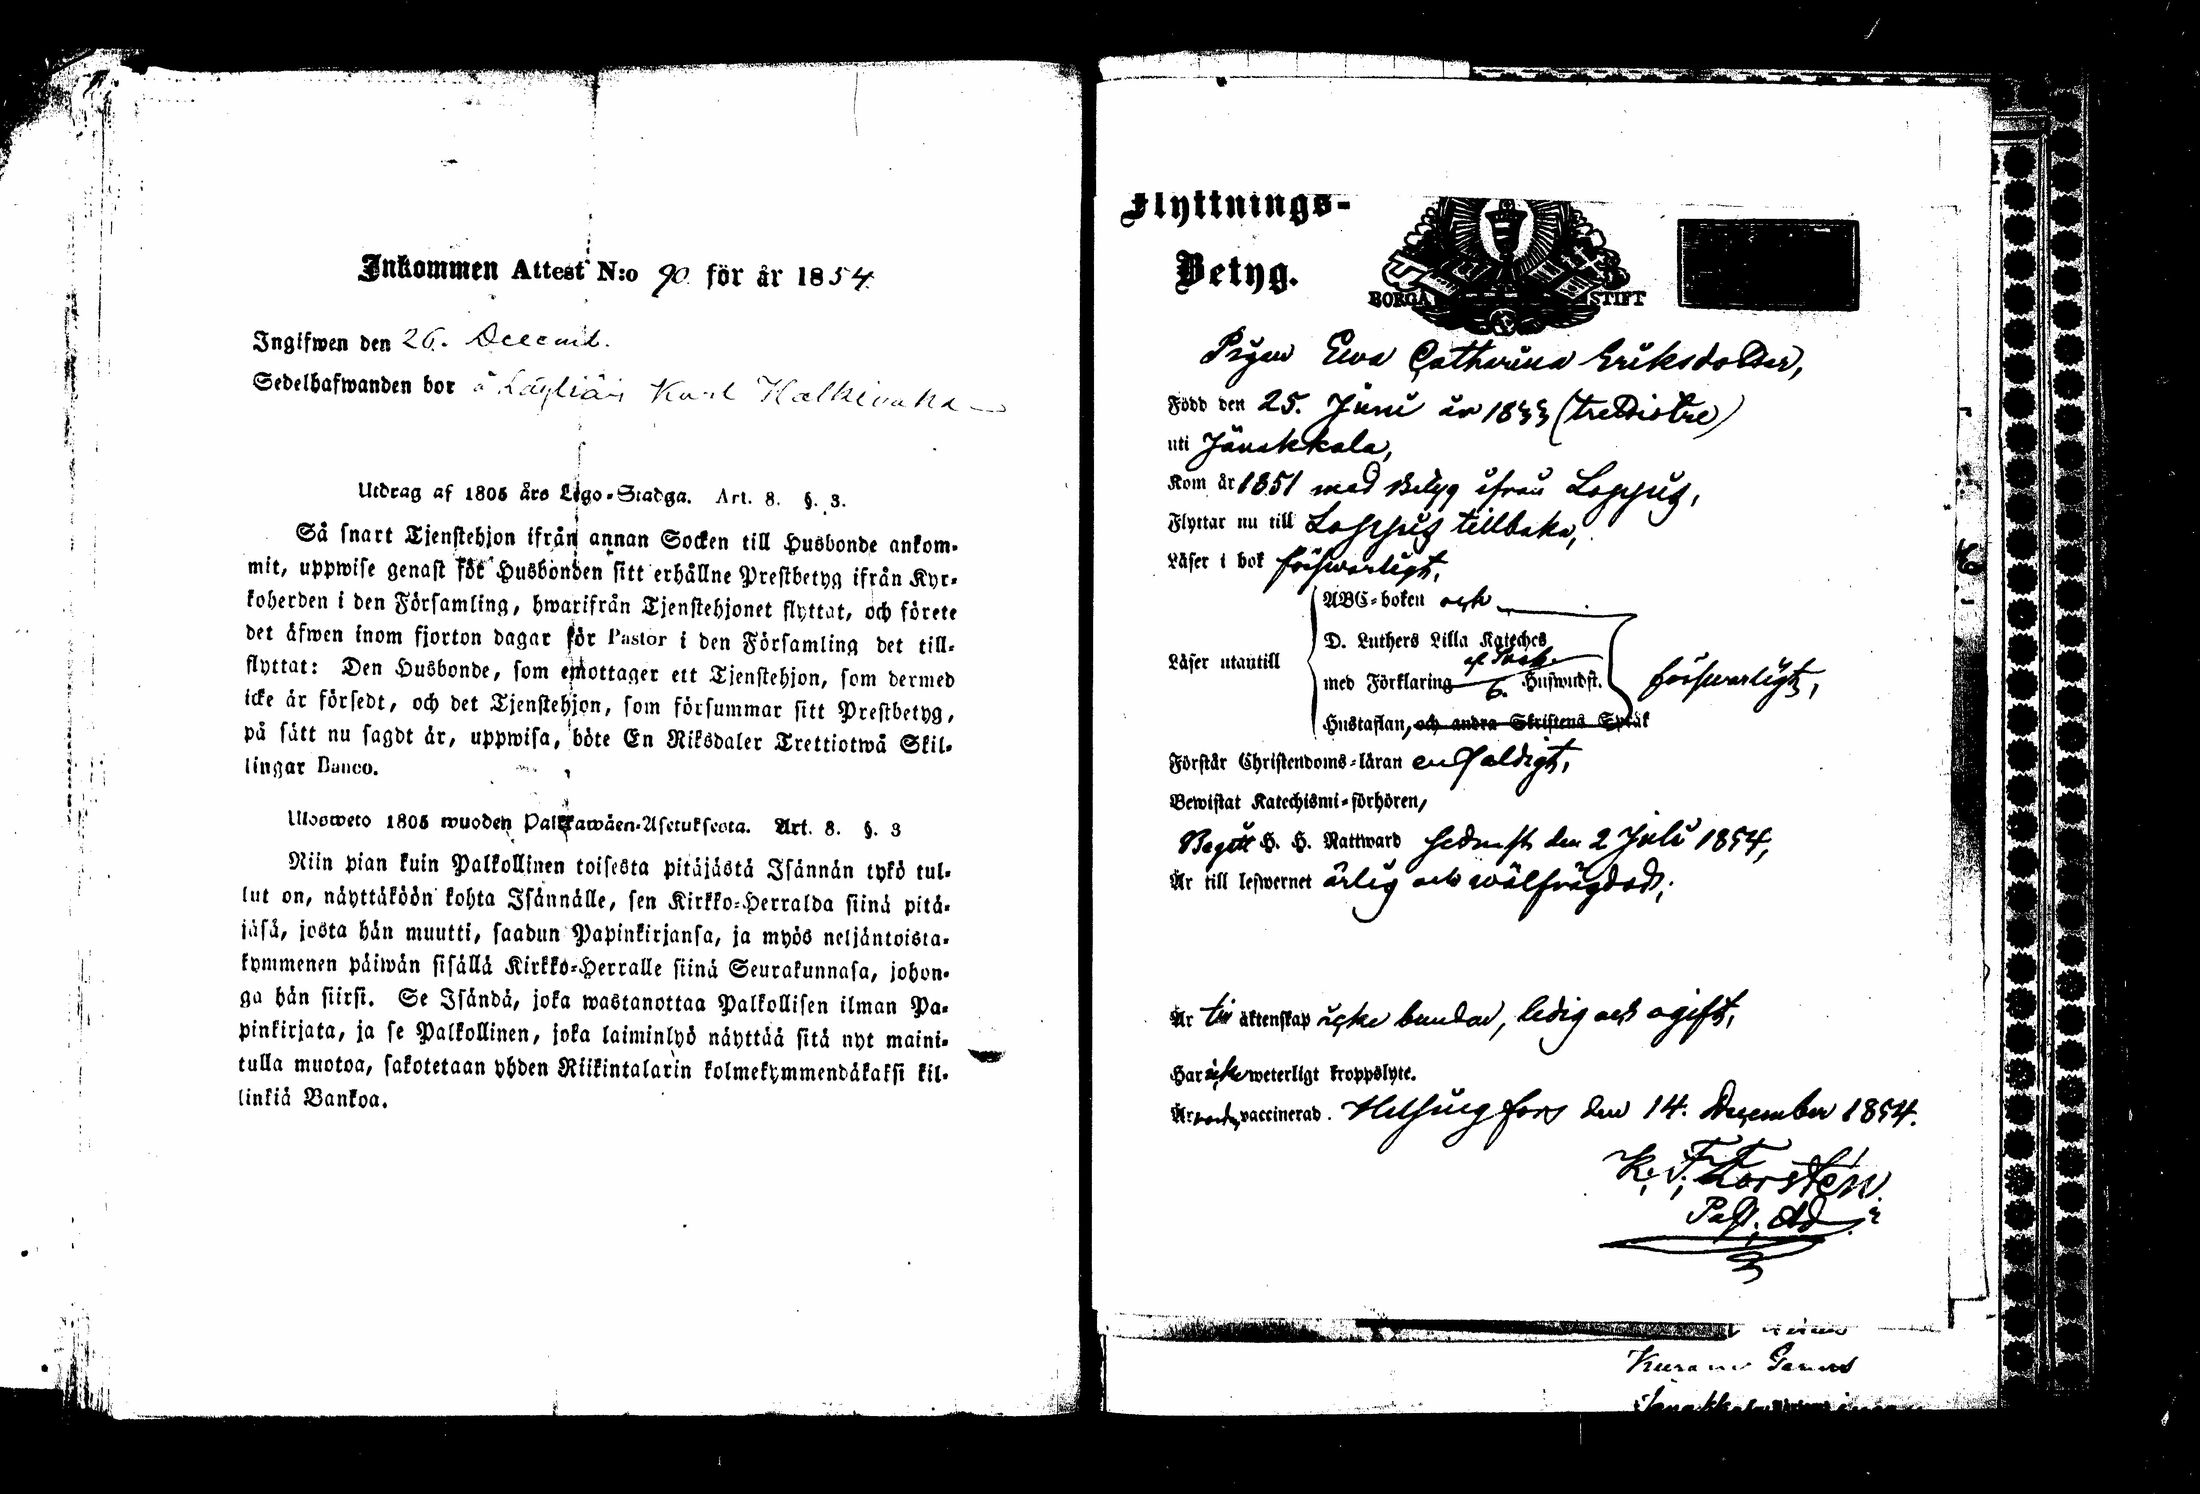 Inkommen Attest N:o 90 för år 1854.
Ingifwen den 26. Decemb.
Sedelhafwanden bor å Läyliäis
Utdrag af 1805 års Lego-Stadga. Art. 8. §. 3.
Så snart Tjenstehjon ifrån annan Socken till Husbonde ankom-
mit, uppwise genast för Husbonden sitt erhållne Prestbetyg ifrån Kyr-
koherden i den Församling, hwarifrån Tjenstehjonet flyttat, och förete
det äfwen inom fjorton dagar för Pastor i den Församling det till-
flyttat: Den Husbonde, som emottager ett Tjenstehjon, som dermed
icke är försedt, och det Tjenstehjon, som försummar sitt Prestbetyg,
på sätt nu sagdt är, uppwisa, böte En Riksdaler Trettiotwå Skil-
lingar Banco.
Ulosweto 1805 wuoden Palkkawäen-Asetuksesta. Art. 8. §. 3
Niin pian kuin Palkollinen toisesta pitäjästä Isännän tykö tul-
lut on, näyttäköön kohta Isännälle, sen Kirkko-Herralda siinä pitä-
jäsä, josta hän muutti, saadun Papinkirjansa, ja myös neljäntoista-
kymmenen päiwän sisällä Kirkko-Herralle siinä Seurakunnasa, johon-
ga hän siirsi. Se Isändä, joka wastanottaa Palkollisen ilman Pa-
pinkirjata, ja se Palkollinen, joka laiminlyö näyttää sitä nyt maini-
tulla muotoa, sakotetaan yhden Riikintalarin kolmekymmendäkaksi kil-
linkiä Bankoa.
Flyttnings-
Betyg.
BORGÅ STIFT
Pigan Ewa Catharina Eriksdotter,
Född den 25. Juni år 1833 (trettiotre)
uti Janakkala,
Kom år 1851 med Betyg ifrån Loppis,
Flyttar nu till Loppis tillbaka,
Läser i bok förswarligt,
Läser utantill
ABC-boken och
D. Luthers Lilla Kateches
med Förklaring af Sweb. Huswudst.
Hustaflan, och andra Skriftens Språk
förswarligt,
Förstår Christendoms-läran enfaldigt,
Bewistat Katechismi-förhören,
Begått H. H. Nattward sednast den 2 Juli 1854,
Är till lefwernet ärlig och wälfrägdad,
Är till äktenskap icke bunden, ledig och ogift,
Har icke weterligt kroppslyte.
Är vaccinerad. Helsingfors den 14. December 1854.
K. F. Forstén.
Past. Ad